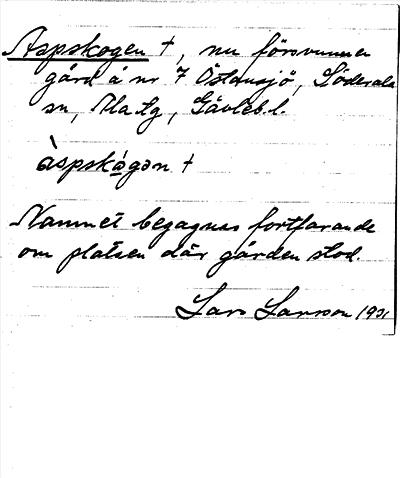 Aspskogen †, nu försvunnen
gård å nr 7 Östansjö, Söderala
sn, Ala tg, Gävleb. l.
àspskágən †
Namnet begagnas fortfarande
om platsen där gården stod.
Lars Larsson 1931